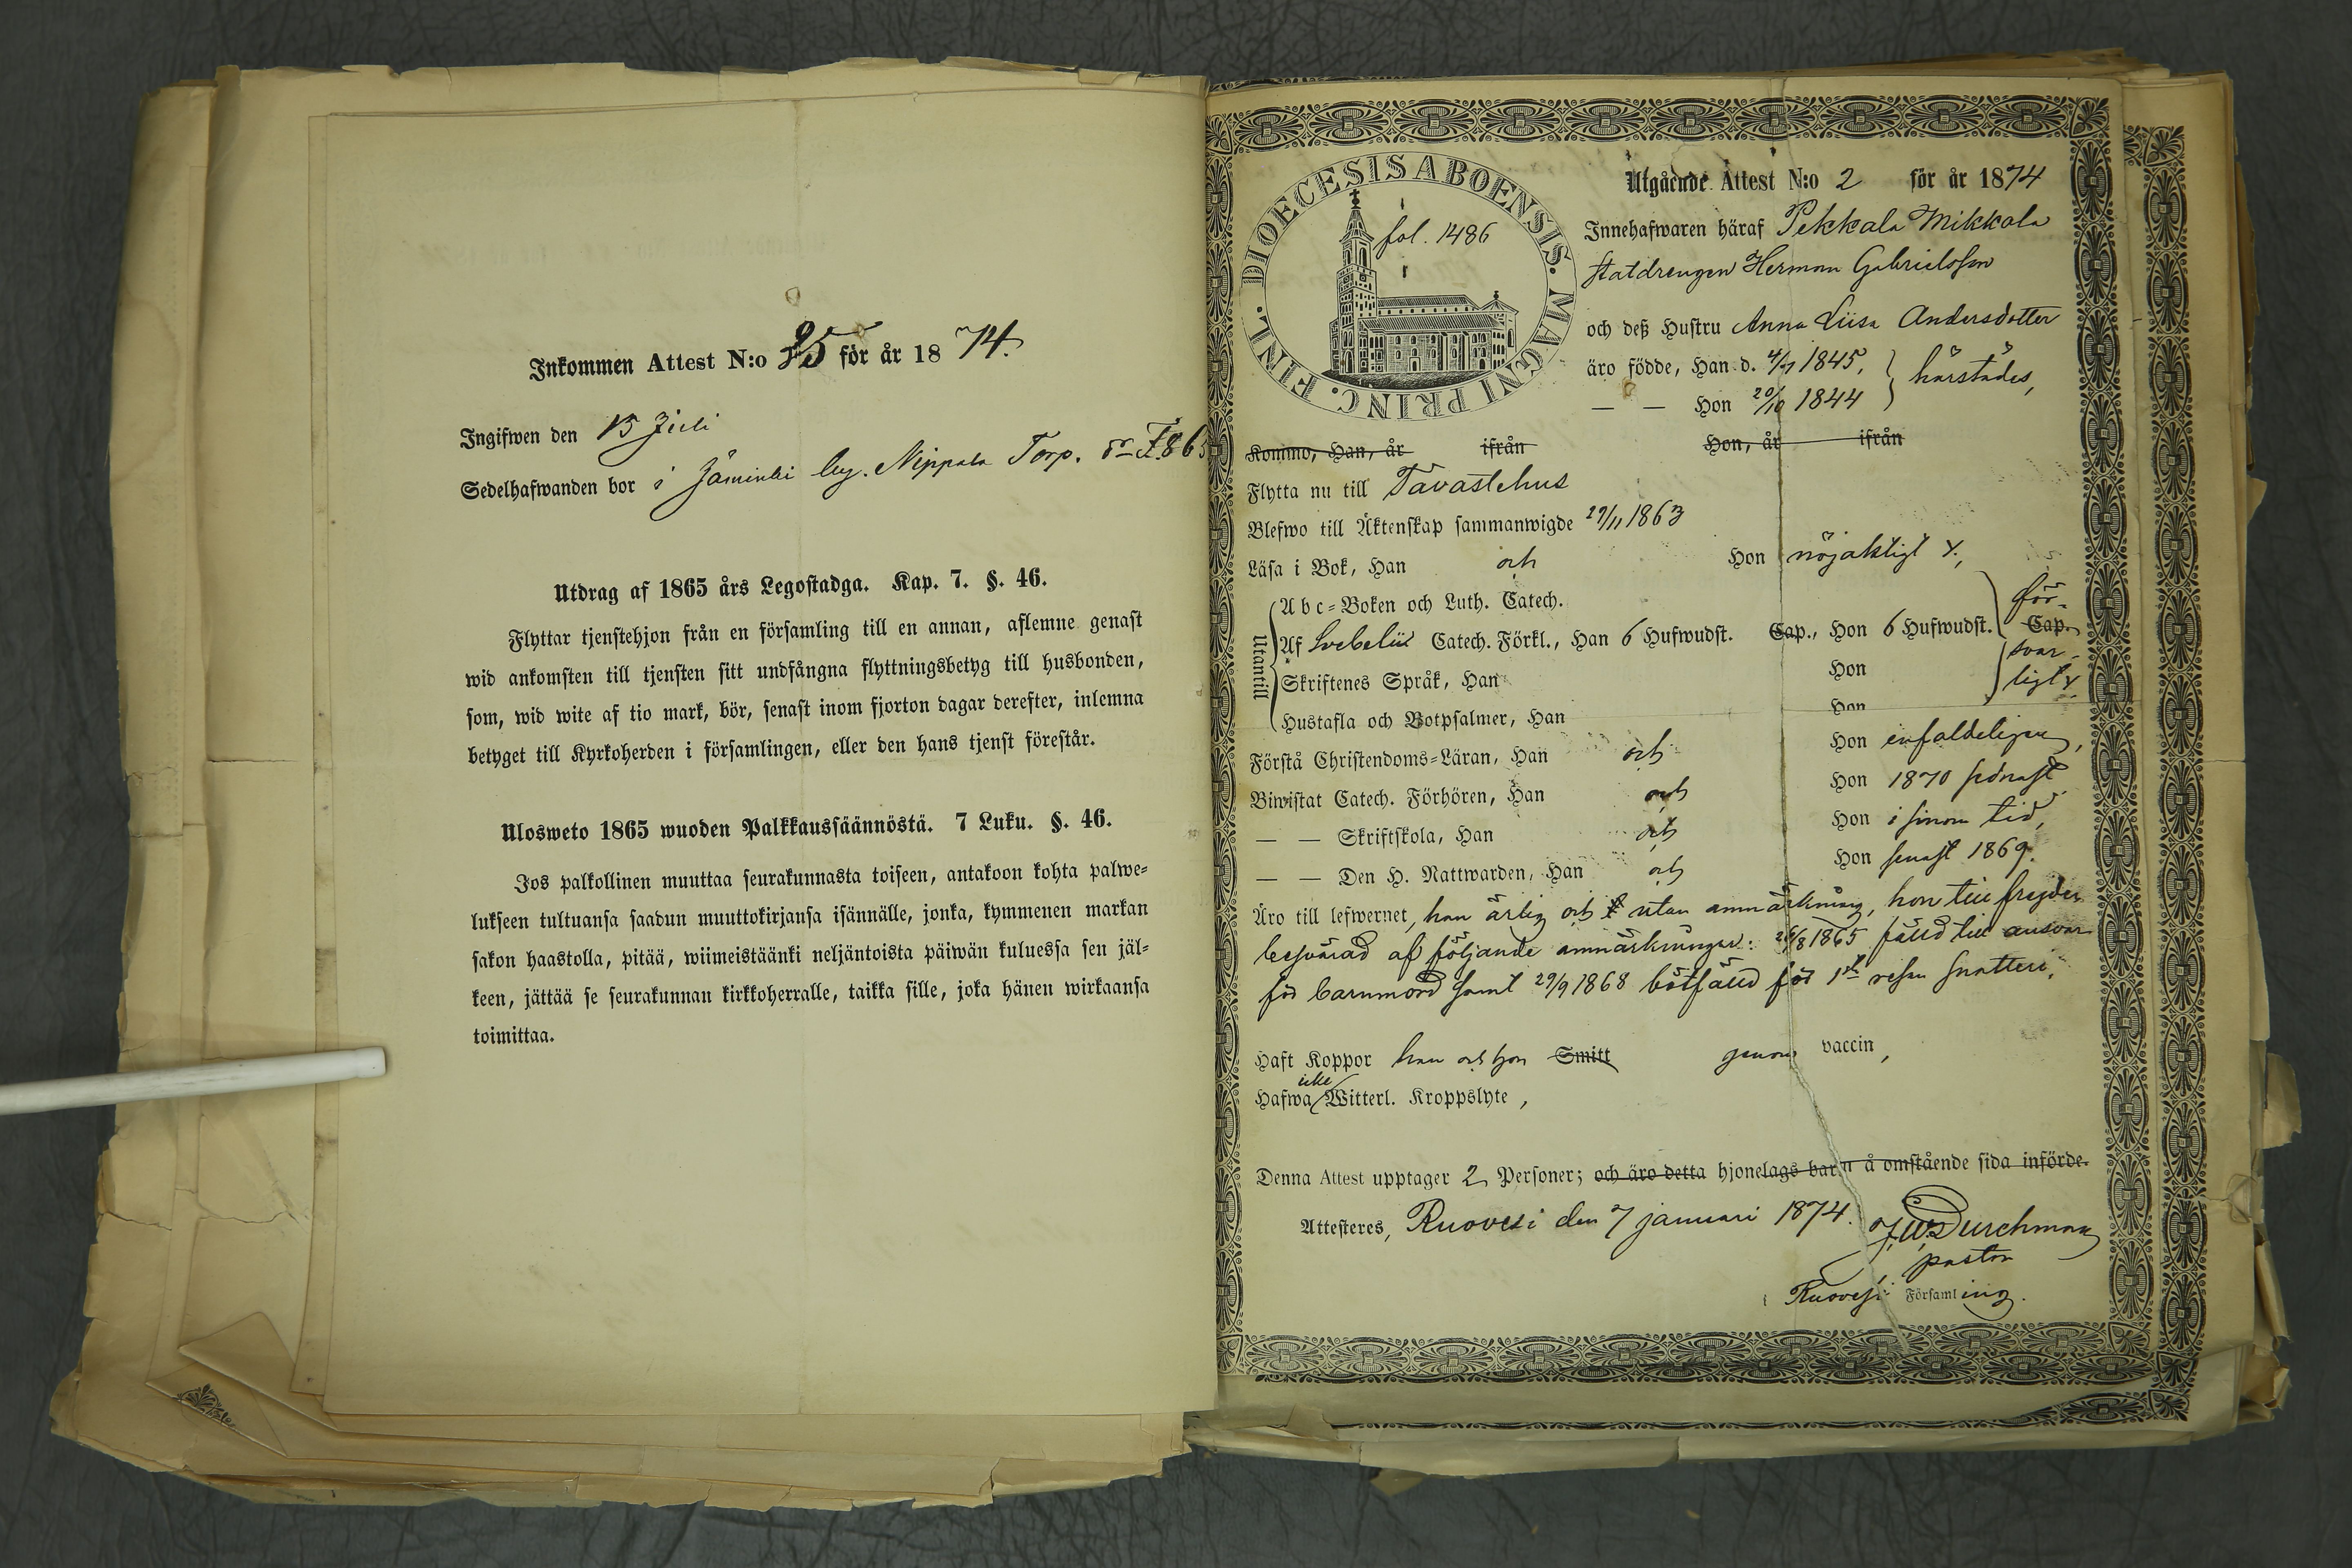 Inkommen Attest N:o 25 för år 1874.
Ingifwen den 15 Juli
Sedelhafwanden bor i Jäminki by. Nippala Torp.
Utdrag af 1865 års Legostadga. Kap. 7. §. 46.
Flyttar tjenstehjon från en församling till en annan, aflemne genast
wid ankomsten till tjensten sitt undfångna flyttningsbetyg till husbonden,
som, wid wite af tio mark, bör, senast inom fjorton dagar derefter, inlemna
betyget till Kyrkoherden i församlingen, eller den hans tjenst förestår.
Ulosweto 1865 wuoden Palkkaussäännöstä. 7 Luku. §. 46.
Jos palkollinen muuttaa seurakunnasta toiseen, antakoon kohta palwe-
lukseen tultuansa saadun muuttokirjansa isännälle, jonka, kymmenen markan
sakon haastolla, pitää, wiimeistäänki neljäntoista päiwän kuluessa sen jäl-
keen, jättää se seurakunnan kirkkoherralle, taikka sille, joka hänen wirkaansa
toimittaa.
DIOECESIS ABOENSIS. MAGNI PRINC. FINL.
fol. 1486
Utgående Attest N:o 2 för år 1874
Innehafwaren häraf Pekkala Mikkola
statdrengen Herman Gabrielsson
och deß Hustru Anna Liisa Andersdotter
äro födde, Han d. 4/7 1845, härstädes,
— — Hon 20/10 1844
Kommo, Han, år ifrån Hon, år ifrån
Flytta nu till Tavastehus
Blefwo till Äktenskap sammanwigde 29/11 1863
Läsa i Bok, Han och Hon nöjaktigt
Utantill
Abc=Boken och Luth. Catech.
Af Svebelii Catech. Förkl., Han 6 Hufwudst. Cap., Hon 6 Hufwudst. Cap.
för-
svar-
ligt
Skriftenes Språk, Han Hon
Hustafla och Botpsalmer, Han Hon
Förstå Christendoms=Läran, Han och Hon enfaldeligen,
Biwistat Catech. Förhören, Han och Hon 1870 senast
— — Skriftskola, Han och Hon i sinom tid,
— — Den H. Nattwarden, Han och Hon senast 1869.
Äro till lefwernet, han ärlig och utan anmärkning, hon till frejden
besvärad af följande anmärkningar: 26/8 1865 fälld till ansvar
för barnmord samt 29/9 1868 bötfälld för 1sta resan snatteri.
Haft Koppor han och hon Smitt genom vaccin,
Hafwa icke Witterl. Kroppslyte,
Denna Attest upptager 2 Personer; och äro detta hjonelags barn å omstående sida införde.
Attesteres, Ruovesi den 7 januari 1874.
J. W. Durchman
pastor
i Ruovesi Församling.